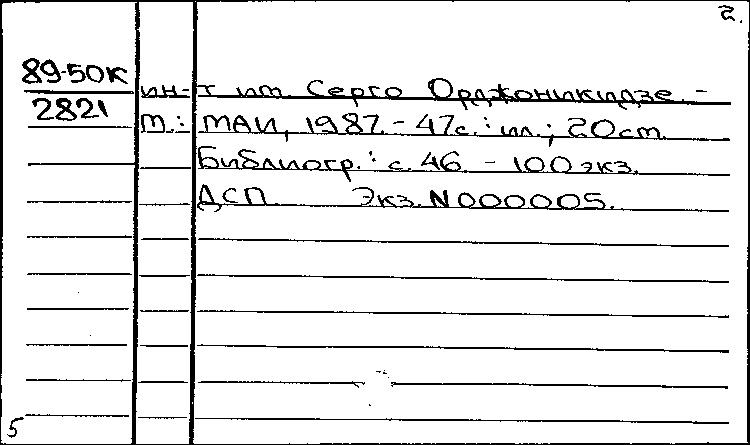 2.
89-50К
2821
ин-т им. Серго Орджоникидзе. -
М.: МАИ, 1987. - 47с.: ил.; 20см.
Библиогр.: с. 46. - 100 экз.
ДСП. Экз. N000005.
5